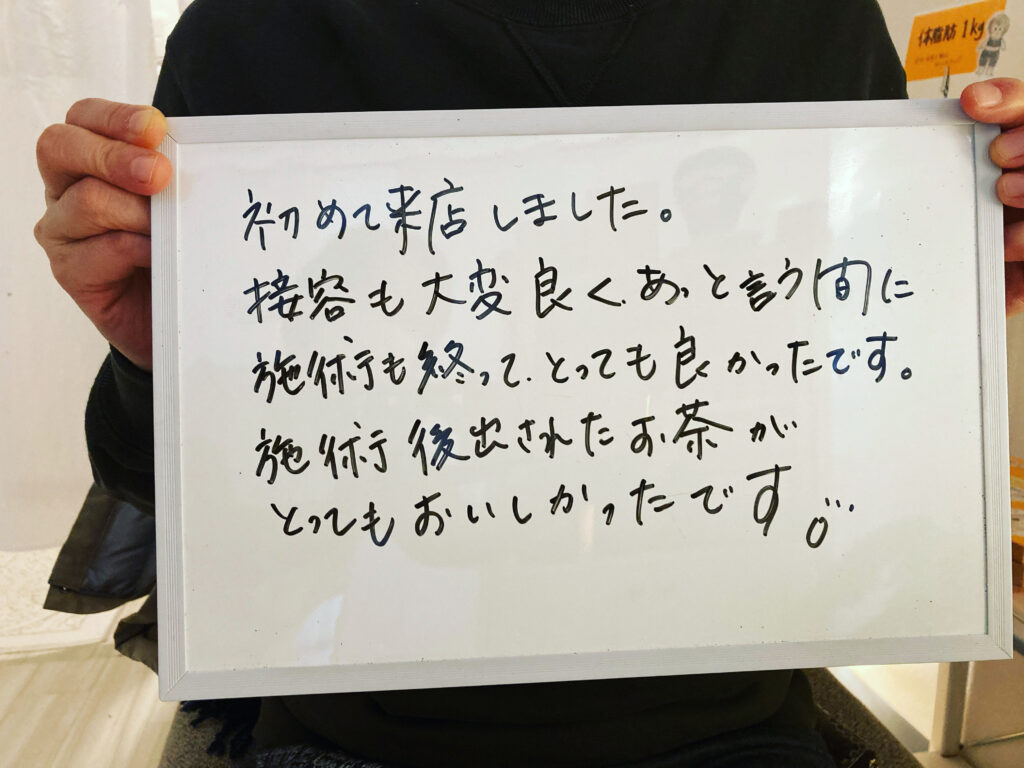 初めて来店しました。
接容も大変良く、あっと言う間に
施術も終って、とっても良かったです。
施術後出されたお茶が
とってもおいしかったです。
体脂肪1kg